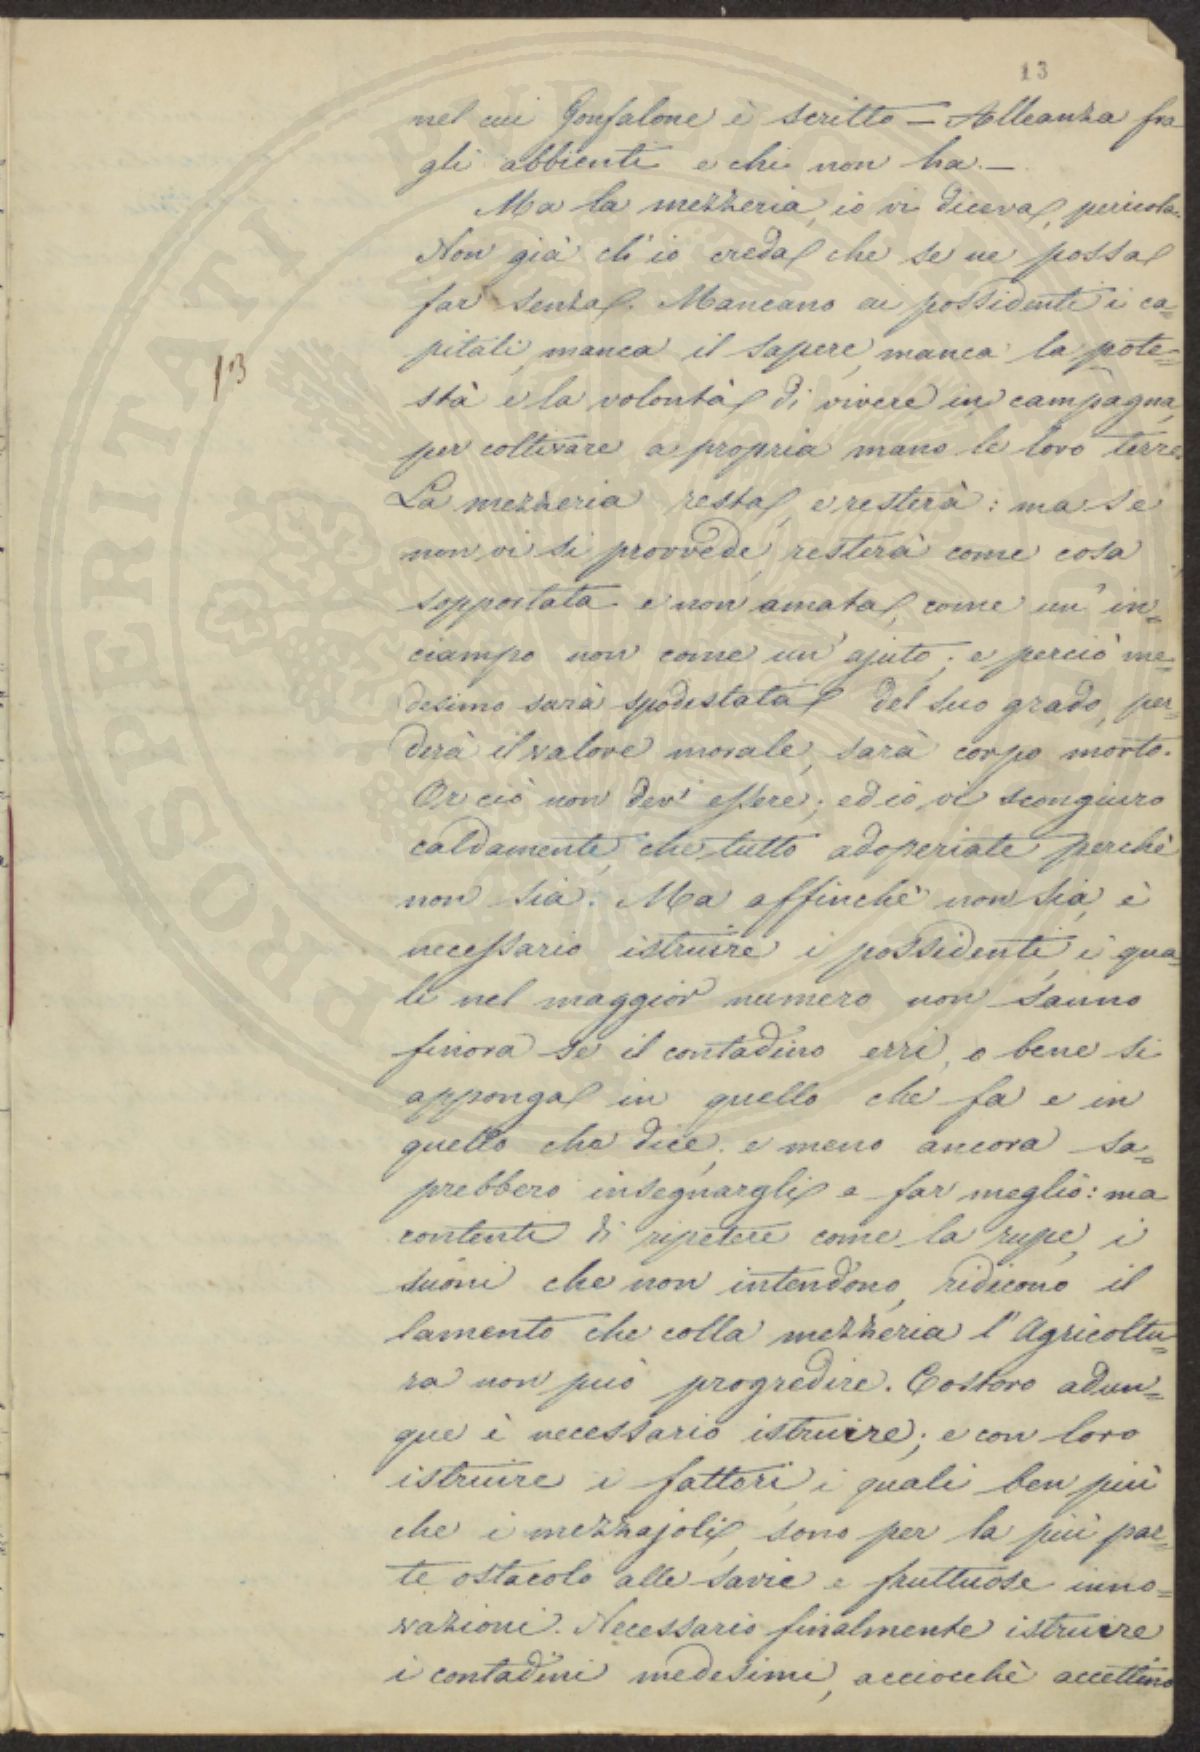 13
nel cui Gonfalone è scritto = Alleanza fra
gli abbienti e chi non ha. —
Ma la mezzeria, io vi diceva, pericola.
Non già ch'io creda che se ne possa
far senza. Mancano ai possidenti i ca=
pitali, manca il sapere, manca la pote=
stà e la volontà di vivere in campagna,
per coltivare a propria mano le loro terre.
13
La mezzeria resta, e resterà: ma se
non vi si provvede, resterà come cosa
sopportata e non amata, come un' in=
ciampo non come un' ajuto; e perciò me=
desimo sarà spodestata del suo grado, per=
derà il valore morale, sarà corpo morto.
Or ciò non dev' essere; ed io vi scongiuro
caldamente, che tutto adoperiate perchè
non sia. Ma affinchè non sia, è
necessario istruire i possidenti, i qua=
li nel maggior numero non sanno
finora se il contadino erri, o bene si
apponga in quello che fa e in
quello che dice, e meno ancora sa=
prebbero insegnargli a far meglio: ma
contenti di ripetere come la rupe, i
suoni che non intendono, ridicono il
lamento che colla mezzeria l'Agricoltu=
ra non può progredire. Costoro adun=
que è necessario istruire; e con loro
istruire i fattori, i quali ben più
che i mezzajoli, sono per la più par=
te ostacolo alle savie e fruttuose inno=
vazioni. Necessario finalmente istruire
i contadini medesimi, acciocchè accettino
PROSPERITATI PUBLICAE